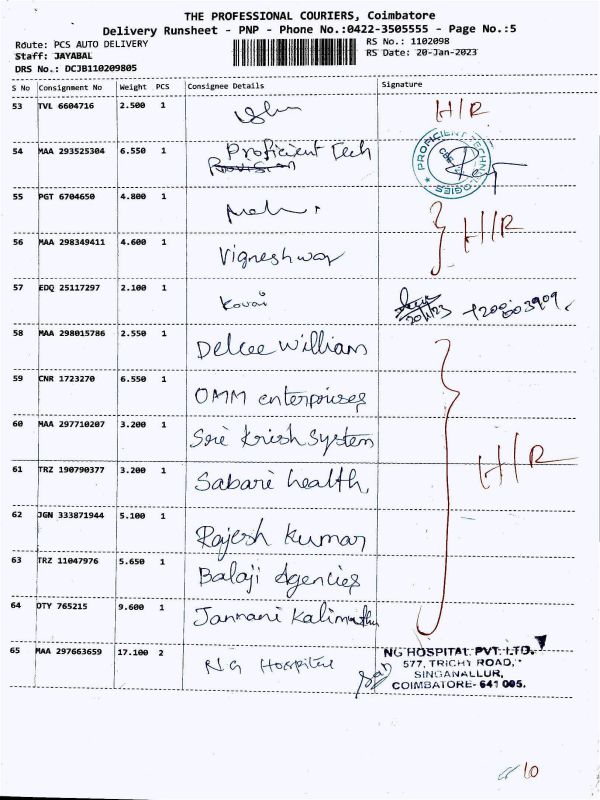 THE PROFESSIONAL COURIERS, Coimbatore
Delivery Runsheet - PNP - Phone No.:0422-3505555 - Page No.:5
Route: PCS AUTO DELIVERY
RS No.: 1102098
Staff: JAYABAL
RS Date: 20-Jan-2023
DRS No.: DCJB110209805
S No Consignment No Weight PCS Consignee Details Signature
53 TVL 6604716 2.500 1 H/R
54 MAA 293525304 6.550 1 Proficient Tech
PROFICIENT TECHNOLOGIES
CBE
55 PGT 6704650 4.800 1
H/R
56 MAA 298349411 4.600 1 Vigneshwar
57 EDQ 25117297 2.100 1 Kovai
20/1/23
58 MAA 298015786 2.550 1 Delcee William
59 CNR 1723270 6.550 1 OMM enterprises
60 MAA 297710207 3.200 1 Sri Krish System
H/R
61 TRZ 190790377 3.200 1 Sabari health,
62 JGN 333871944 5.100 1 Rajesh Kumar
63 TRZ 11047976 5.650 1 Balaji Agencies
64 OTY 765215 9.600 1 Jannani Kalimuthu
65 MAA 297663659 17.100 2 NG Hospital
NG HOSPITAL PVT. LTD.
577, TRICHY ROAD,
SINGANALLUR,
COIMBATORE- 641 005.
10